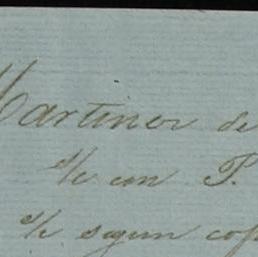 Martinez de
% con P.
% segun cop